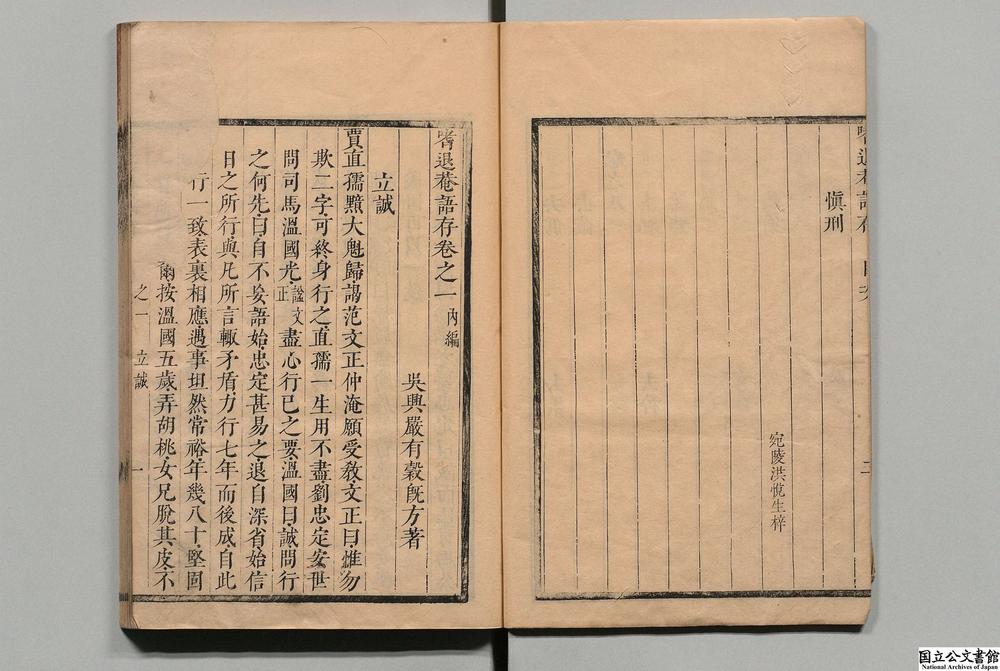 嗜退菴語存 目次
慎刑
宛陵洪悅生梓
嗜退菴語存卷之一 內編
吳興嚴有穀旣方著
立誠
賈直孺黯大魁歸謁范文正仲淹願受敎文正曰惟勿
欺二字可終身行之直孺一生用不盡劉忠定安世
問司馬溫國光謚文正盡心行己之要溫國曰誠問行
之何先曰自不妄語始忠定甚易之退自深省始信
日之所行與凡所言輒矛盾力行七年而後成自此
行一致表裏相應遇事坦然常裕年幾八十堅固
爾按溫國五歲弄胡桃女兄脫其皮不
之一 立誠 一
国立公文書館
National Archives of Japan